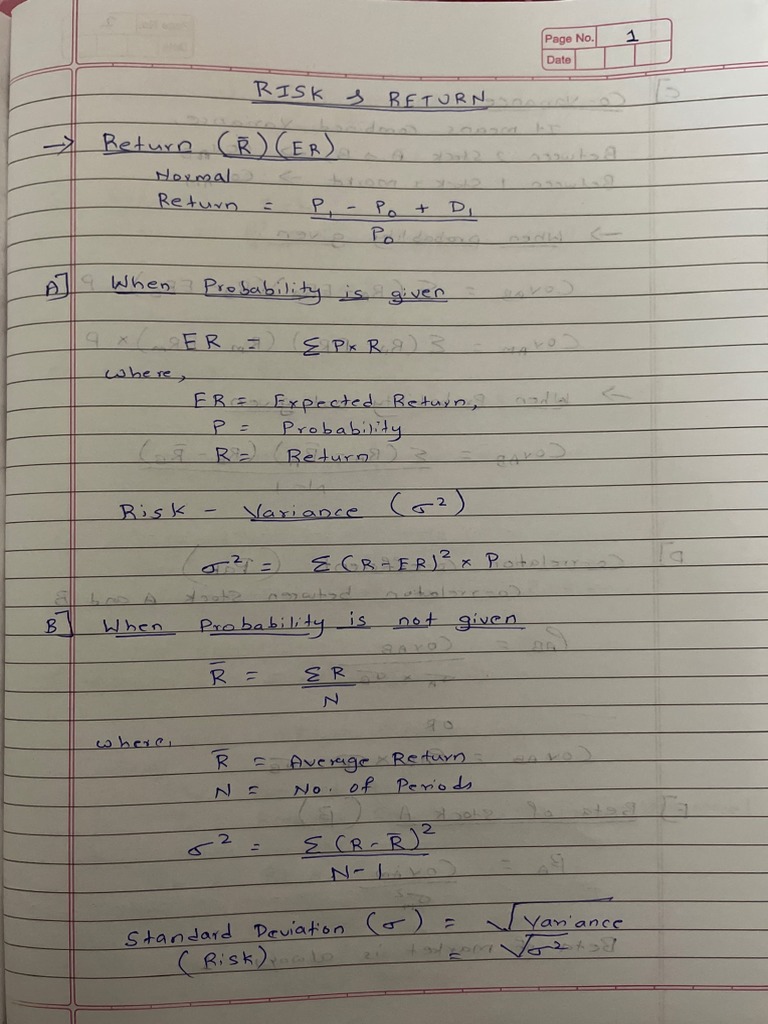 Page No. 1
Date
RISK & RETURN
→ Return (R̄) (ER)
Normal
Return = P₁ - P₀ + D₁
P₀
A] When Probability is given
ER = Σ P × R
where,
ER = Expected Return,
P = Probability
R = Return
Risk - Variance (σ²)
σ² = Σ (R - ER)² × P
B] When Probability is not given
R̄ = Σ R
N
where,
R̄ = Average Return
N = No. of Periods
σ² = Σ (R - R̄)²
N - 1
Standard Deviation (σ) = √Variance
(Risk) = √σ²